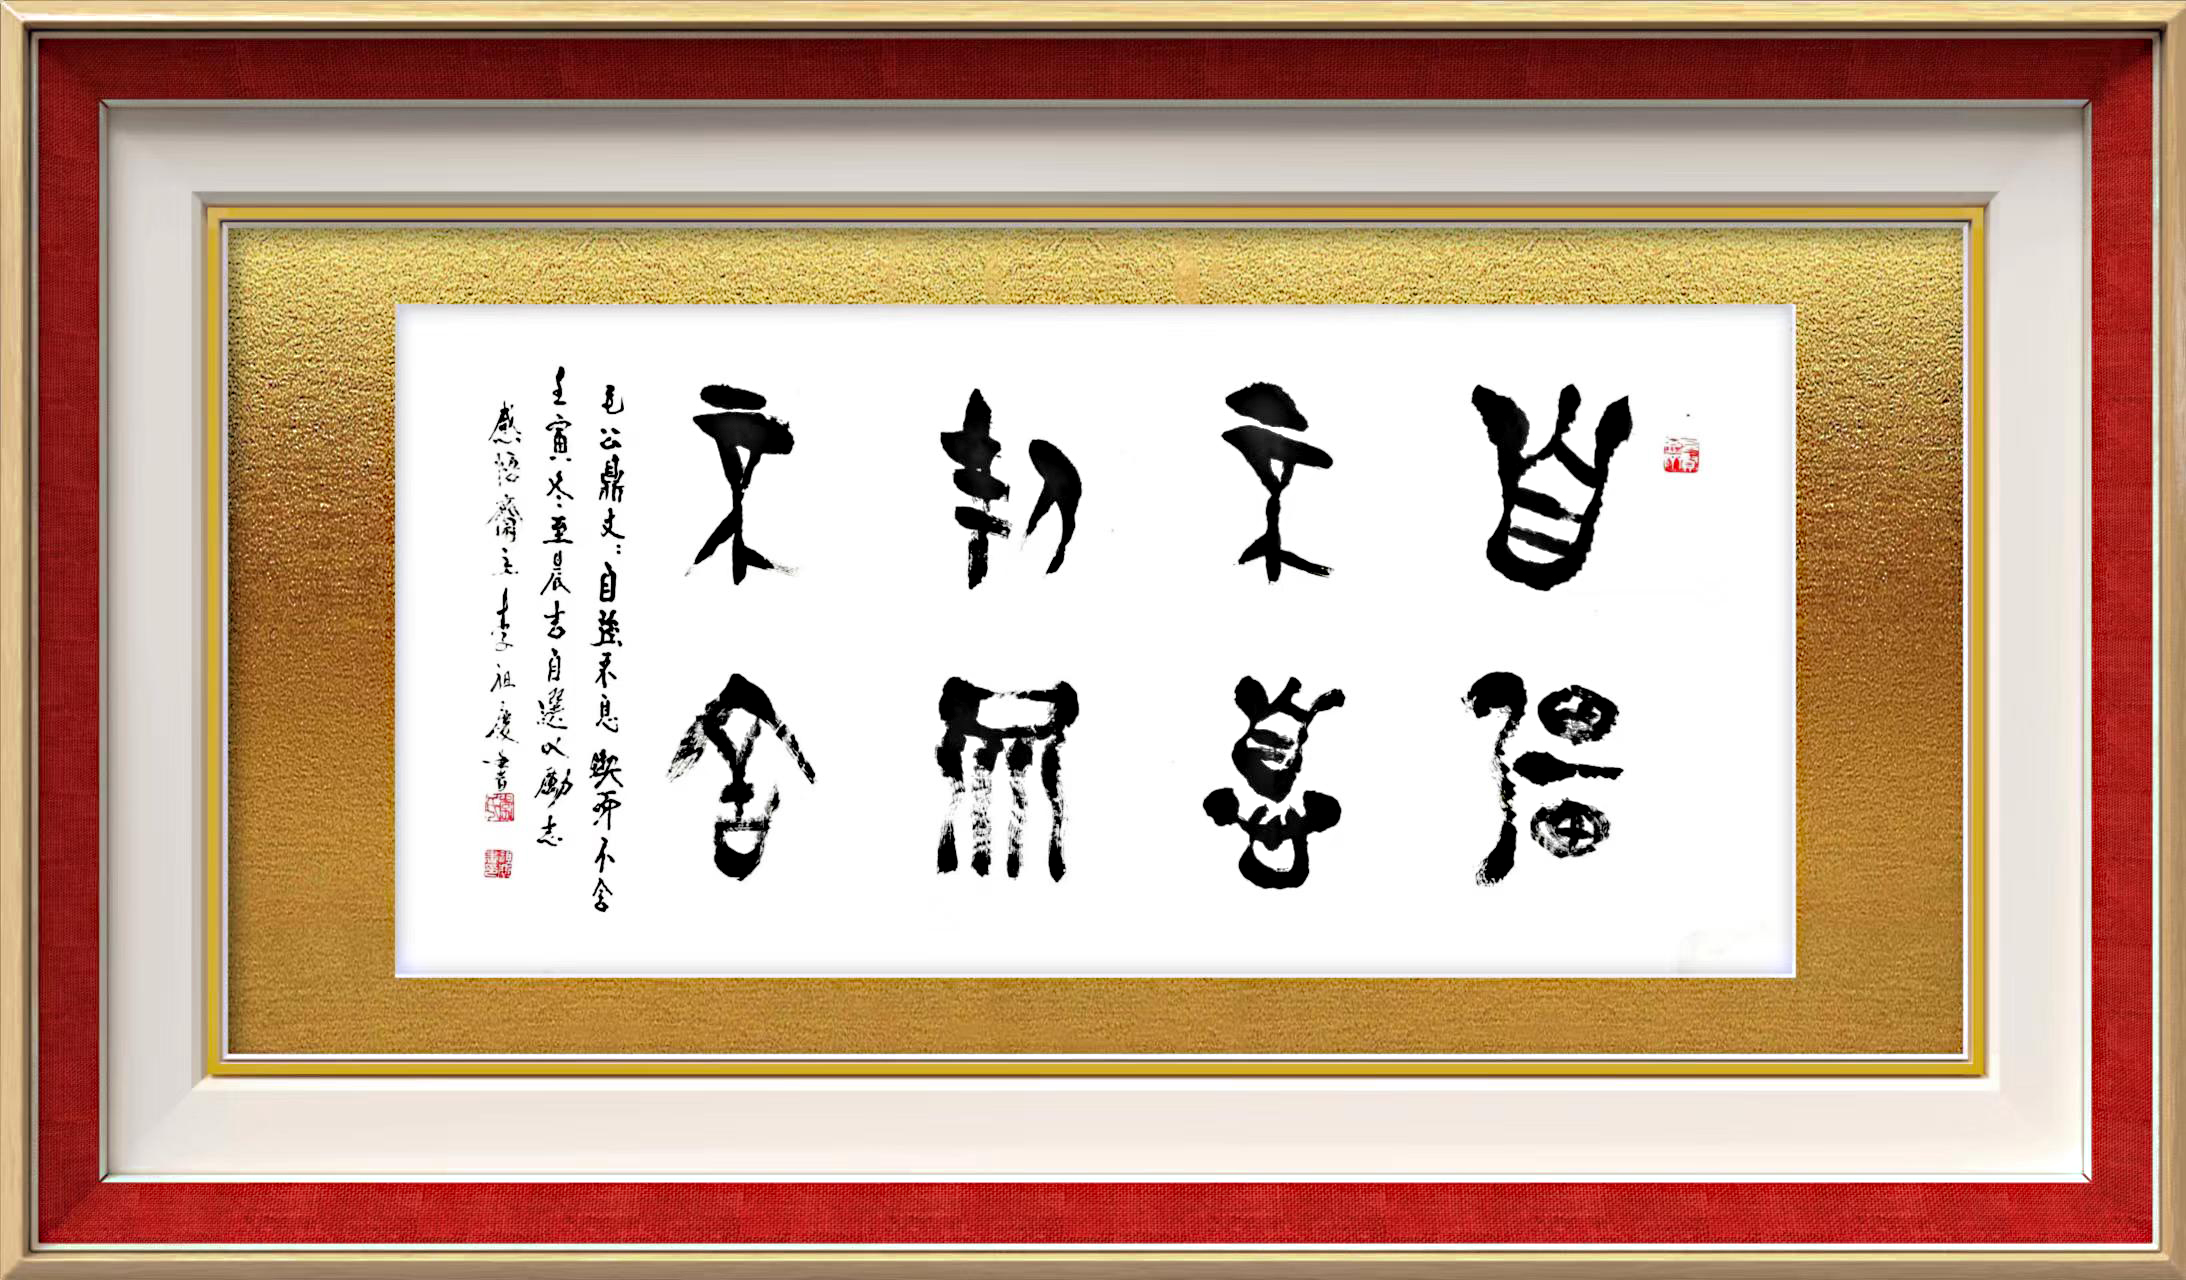 自彊
不息
㓞而
不舍
毛公鼎文：自强不息鍥而不舍
壬寅冬至晨吉自選以勵志
感悟齋主李祖慶書